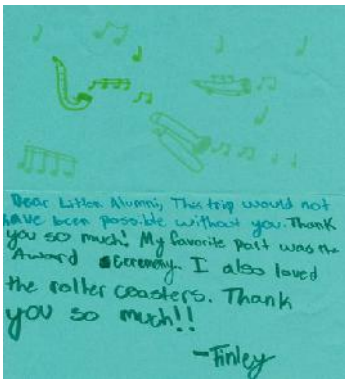 Dear Litton Alumni, This trip would not
have been possible without you. Thank
you so much! My favorite part was the
Award Ceremony. I also loved
the roller coasters. Thank
you so much!!
-Finley